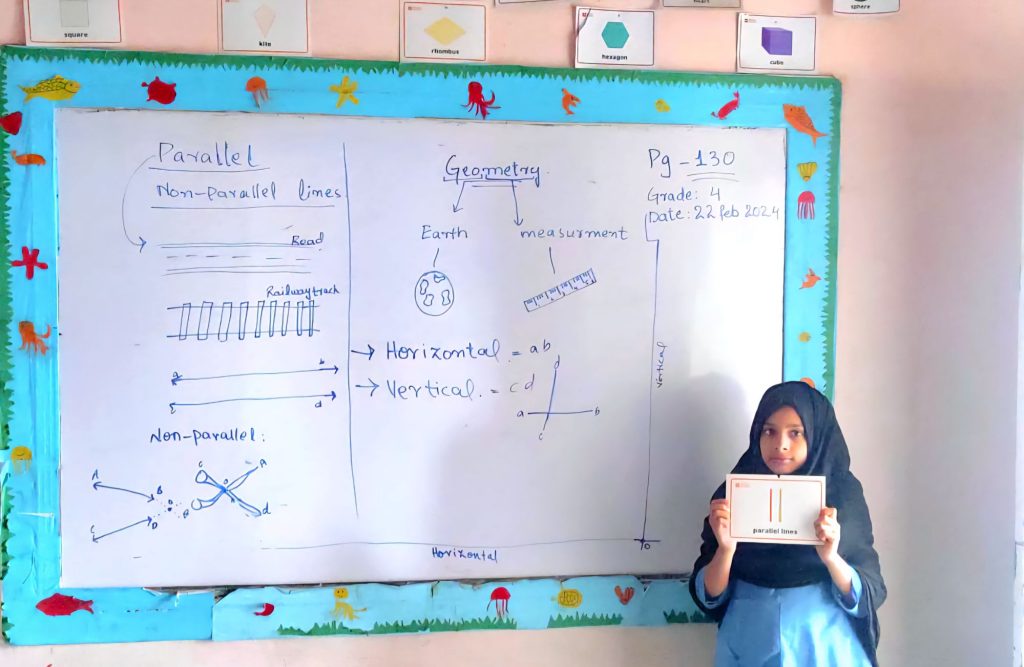 square
kite
rhombus
hexagon
cube
sphere
Parallel
Non-parallel lines
Road
Railway track
a b
c d
Non-parallel:
A
B
C
D
O
C
A
O
B
d
Geometry.
Earth
measurment
→ Horizontal = ab
→ Vertical. = cd
d
a b
c
Pg - 130
Grade: 4
Date: 22 feb 2024
Vertical
Horizontal
parallel lines